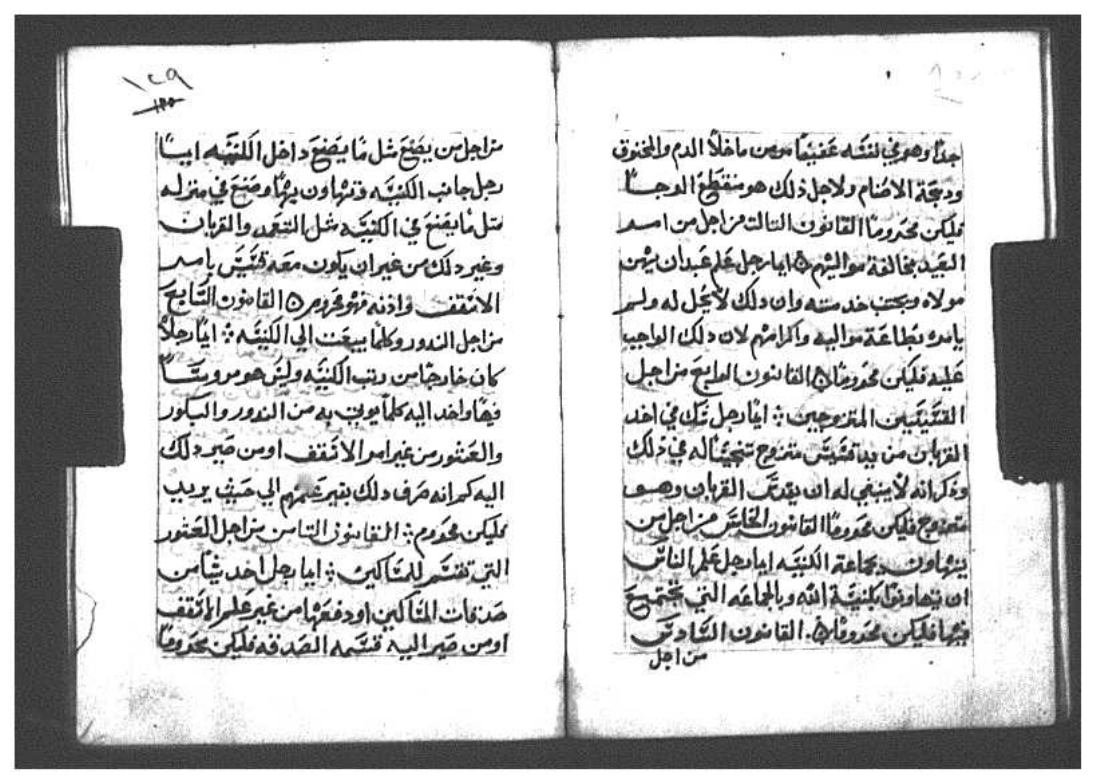 جدا وهو في نفسه عفيفا مومن ماخلا الدم والمخنوق
ودبيحة الاصنام ولاجل ذلك هو منقطع الرجا
فليكن محروما القانون التالت من اجل من امر
العبيد بمخالفة مواليهم ايما رجل علم عبدان يهن
مولاه ويجتنب خدمته وان دلك لا يحل له ولم
يامره بطاعة مواليه واكرامهم لان دلك الواجب
عليه فليكن محروما القانون الرابع من اجل
القسيسين المتزوجين ايما رجل شك في اخد
القربان من يد قسيس متزوج تنجيسا له في ذلك
وذكر انه لا ينبغي له ان يقدس القربان وهو
متزوج فليكن محروما القانون الخامس من اجل من
يتهاون بجماعة الكنيسه ايما رجل علم الناس
ان يتهاونوا بكنيسة الله وبالجماعه التي تجتمع
فيها فليكن محروما القانون السادس
من اجل
١٢٩
من اجل من يصنع مثل ما يصنع داخل الكنيسه ايما
رجل جانب الكنيسه وتهاون بها وصنع في منزله
متل ما يصنع في الكنيسه مثل التعمد والقربان
وغير دلك من غير ان يكون معه قسيس بامر
الاسقف واذنه فهو محروم القانون السابع
من اجل الندور وكلما يبعت الي الكنيسه ايما رجلا
كان خارجا من رتب الكنيسه وليس هو مرووسا
فيها واخد اليه كلما يوتي به من الندور والبكور
والعشور من غير امر الاسقف اومن صير دلك
اليه كمرانه صرف دلك بغير علمهم الي حيث يريد
فليكن محروم القانون التامن من اجل العشور
التي تقسم للمساكين ايما رجل اخد شيا من
صدقات المساكين اودفعها من غير علم الاسقف
اومن صير اليه قسمه الصدقه فليكن محروما